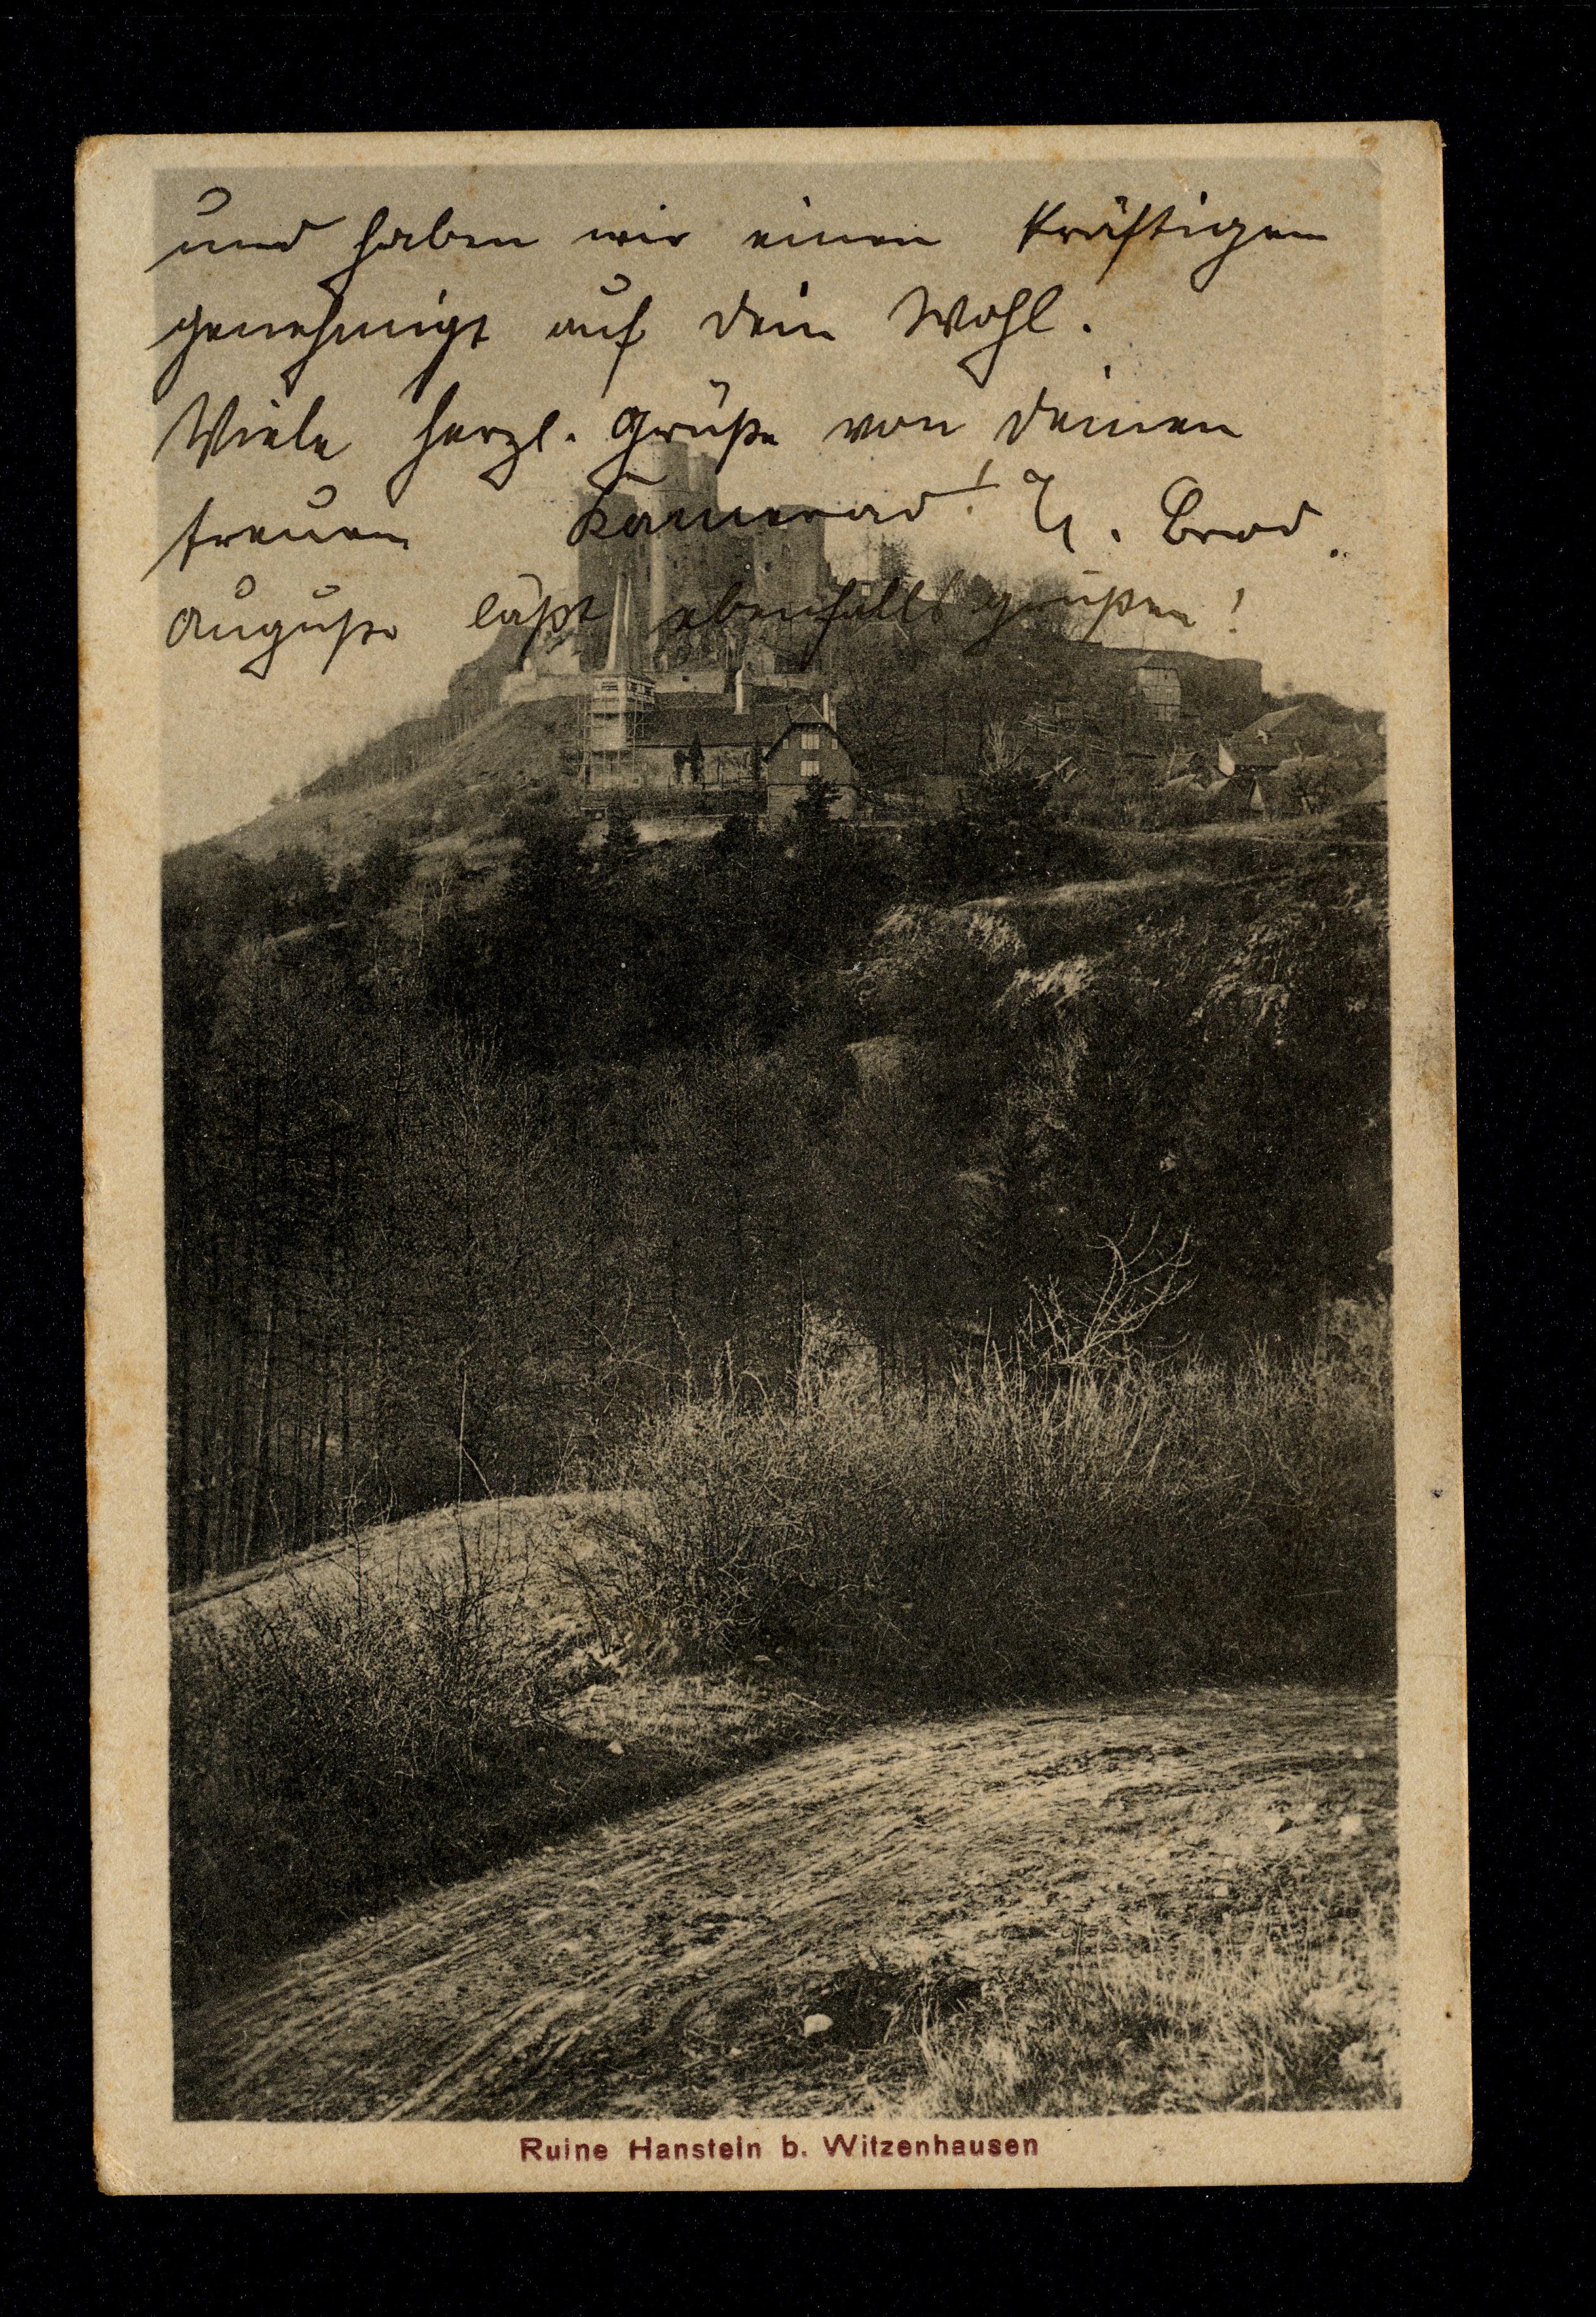 und haben wir einen kräftigen
genehmigt auf dein Wohl.
Viele herzl. Grüße von deinen
treuen Kamerad!
Auguste läßt ebenfalls grüßen!
Ruine Hanstein b. Witzenhausen